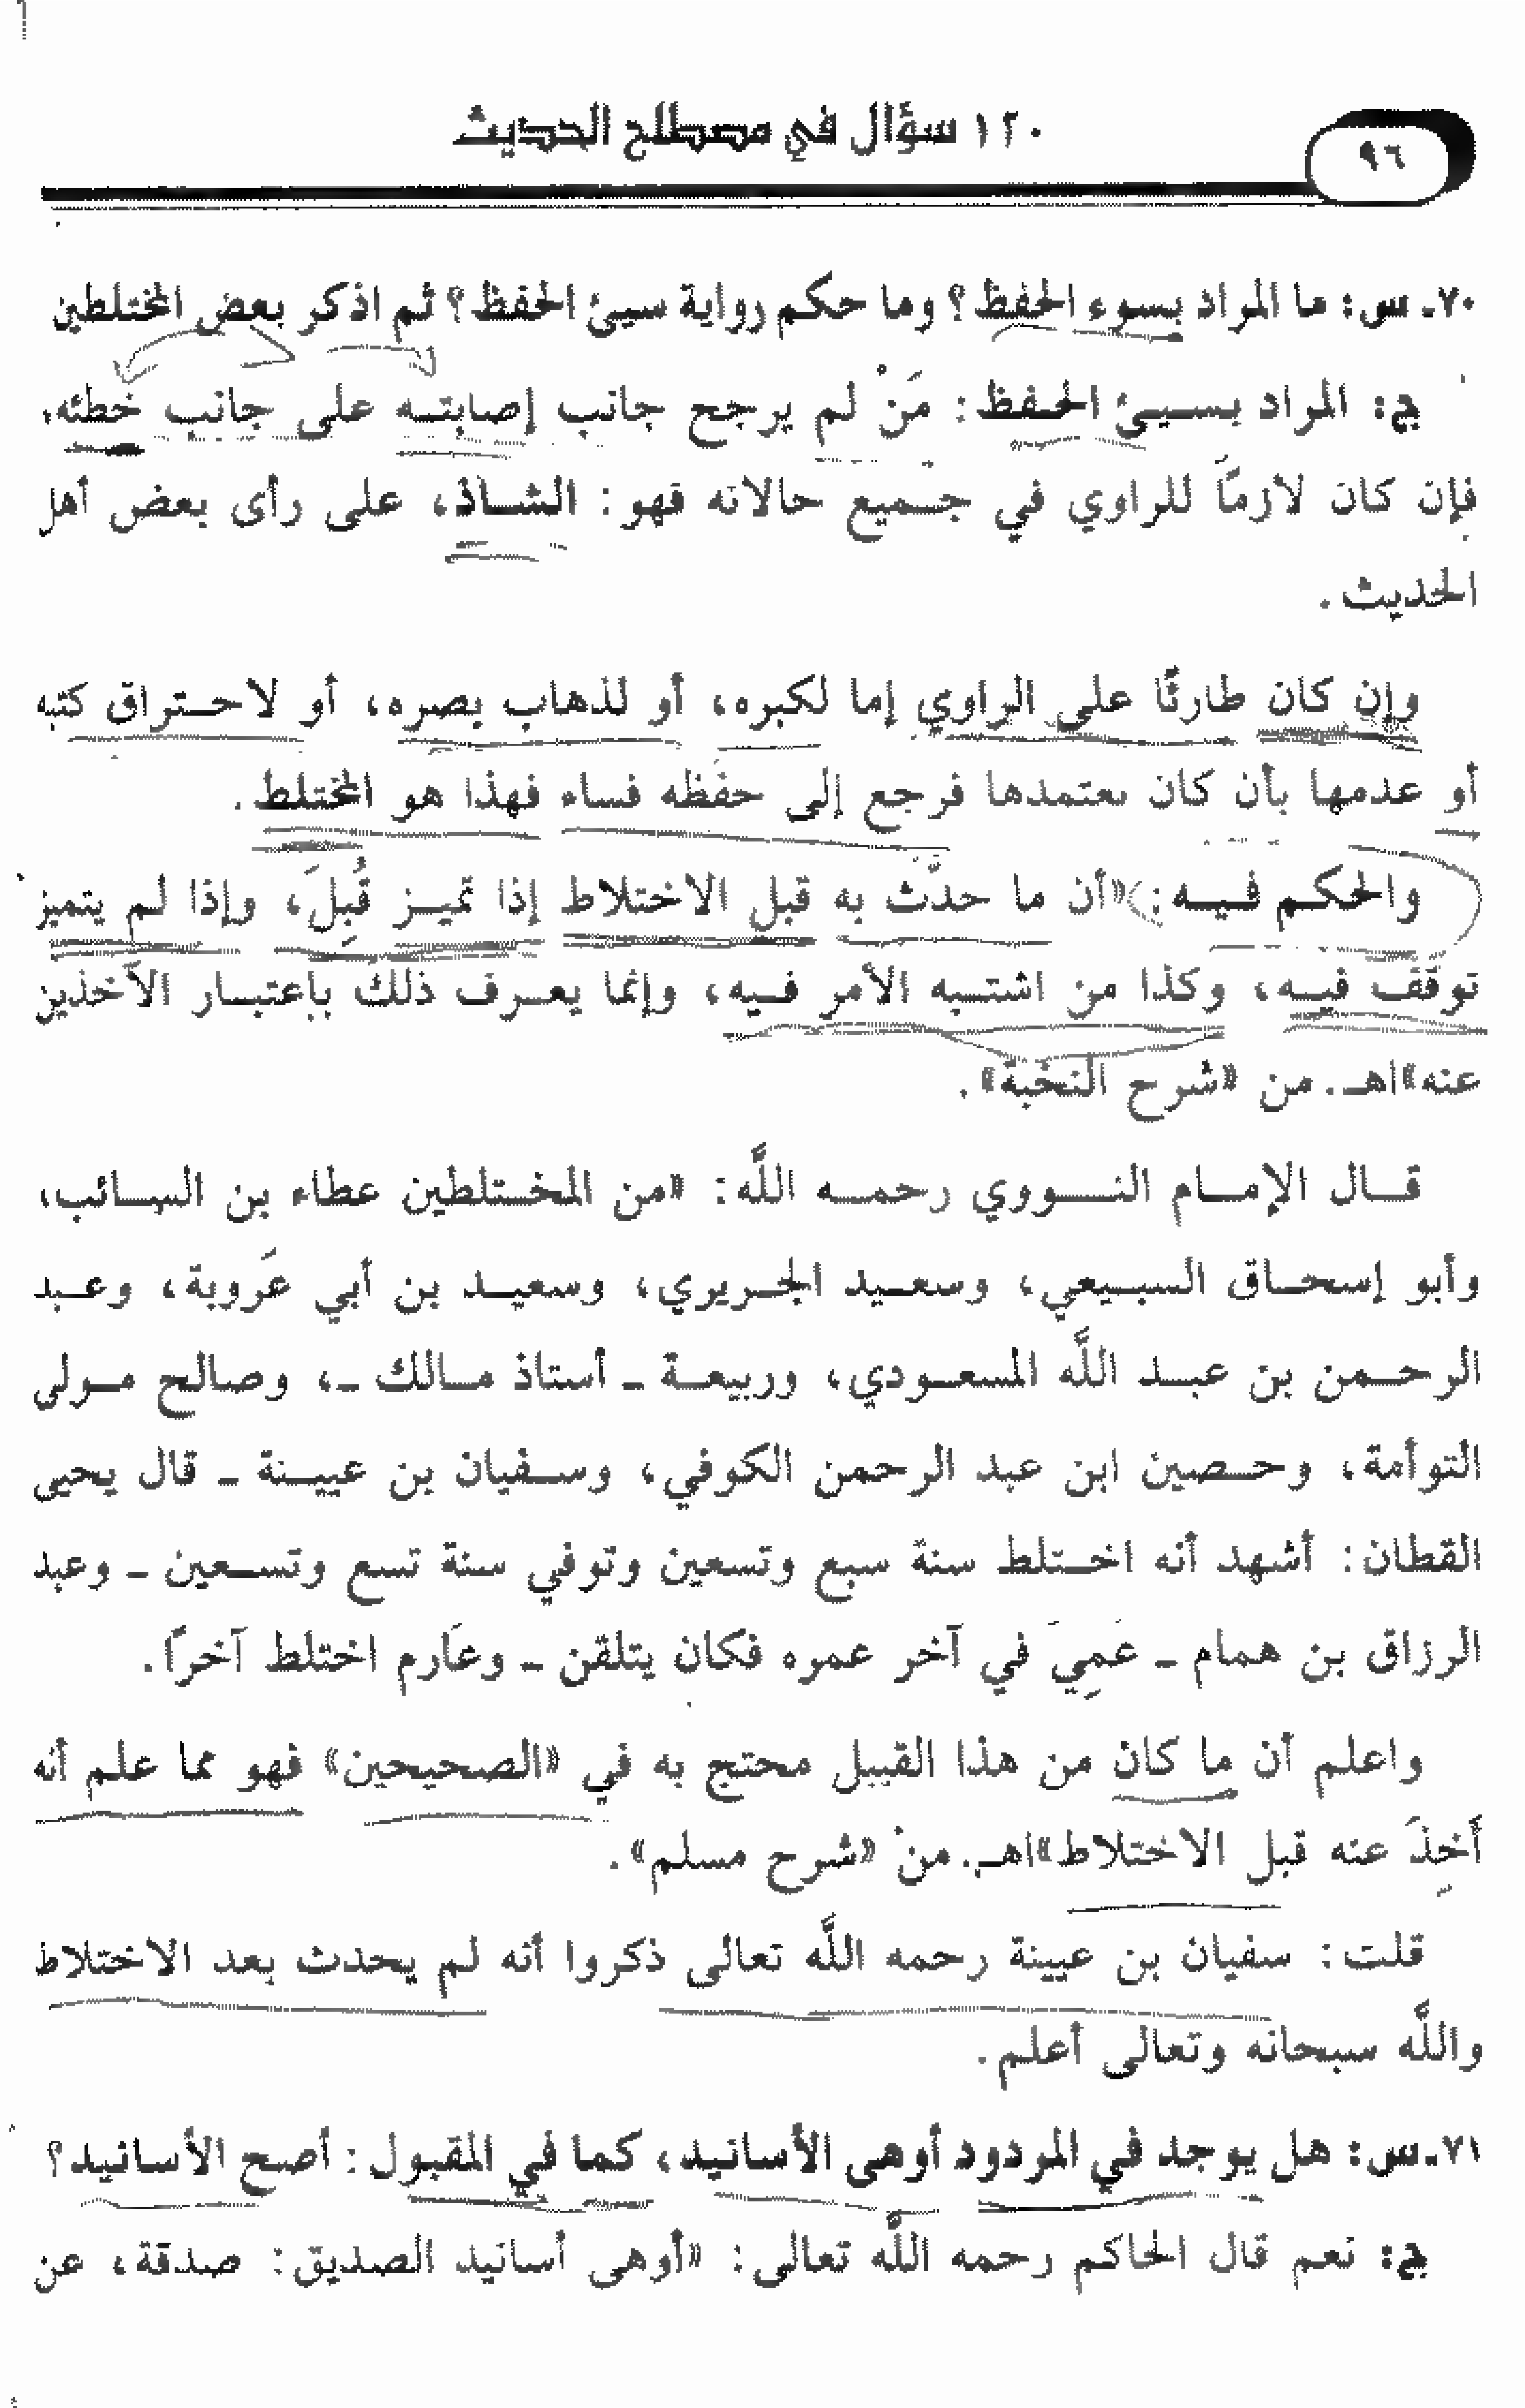 ٩٦
١٢٠ سؤال في مصطلح الحديث
٧٠ـ س: ما المراد بسوء الحفظ؟ وما حكم رواية سيئ الحفظ؟ ثم اذكر بعض المختلطين
ج: المراد بسيئ الحفظ: مَنْ لم يرجح جانب إصابته على جانب خطئه،
فإن كان لازمًا للراوي في جميع حالاته فهو: الشاذ، على رأى بعض أهل
الحديث.
وإن كان طارئًا على الراوي إما لكبره، أو لذهاب بصره، أو لاحتراق كتبه
أو عدمها بأن كان يعتمدها فرجع إلى حفظه فساء فهذا هو المختلط.
والحكم فيه: «أن ما حدَّث به قبل الاختلاط إذا تميز قُبِلَ، وإذا لم يتميز
توقِّف فيه، وكذا من اشتبه الأمر فيه، وإنما يعرف ذلك باعتبار الآخذين
عنه»اهـ. من «شرح النخبة».
قال الإمام النووي رحمه اللَّه: «من المختلطين عطاء بن السائب،
وأبو إسحاق السبيعي، وسعيد الجريري، وسعيد بن أبي عَروبة، وعبد
الرحمن بن عبد اللَّه المسعودي، وربيعة ـ أستاذ مالك ـ، وصالح مولى
التوأمة، وحصين ابن عبد الرحمن الكوفي، وسفيان بن عيينة ـ قال يحيى
القطان: أشهد أنه اختلط سنة سبع وتسعين وتوفي سنة تسع وتسعين ـ وعبد
الرزاق بن همام ـ عَمِيَ في آخر عمره فكان يتلقن ـ وعَارم اختلط آخرًا.
واعلم أن ما كان من هذا القبيل محتج به في «الصحيحين» فهو مما علم أنه
أُخِذَ عنه قبل الاختلاط»اهـ. منْ «شرح مسلم».
قلت: سفيان بن عيينة رحمه اللَّه تعالى ذكروا أنه لم يحدث بعد الاختلاط
واللَّه سبحانه وتعالى أعلم.
٧١ـ س: هل يوجد في المردود أوهى الأسانيد، كما في المقبول: أصح الأسانيد؟
ج: نعم قال الحاكم رحمه اللَّه تعالى: «أوهى أسانيد الصديق: صدقة، عن